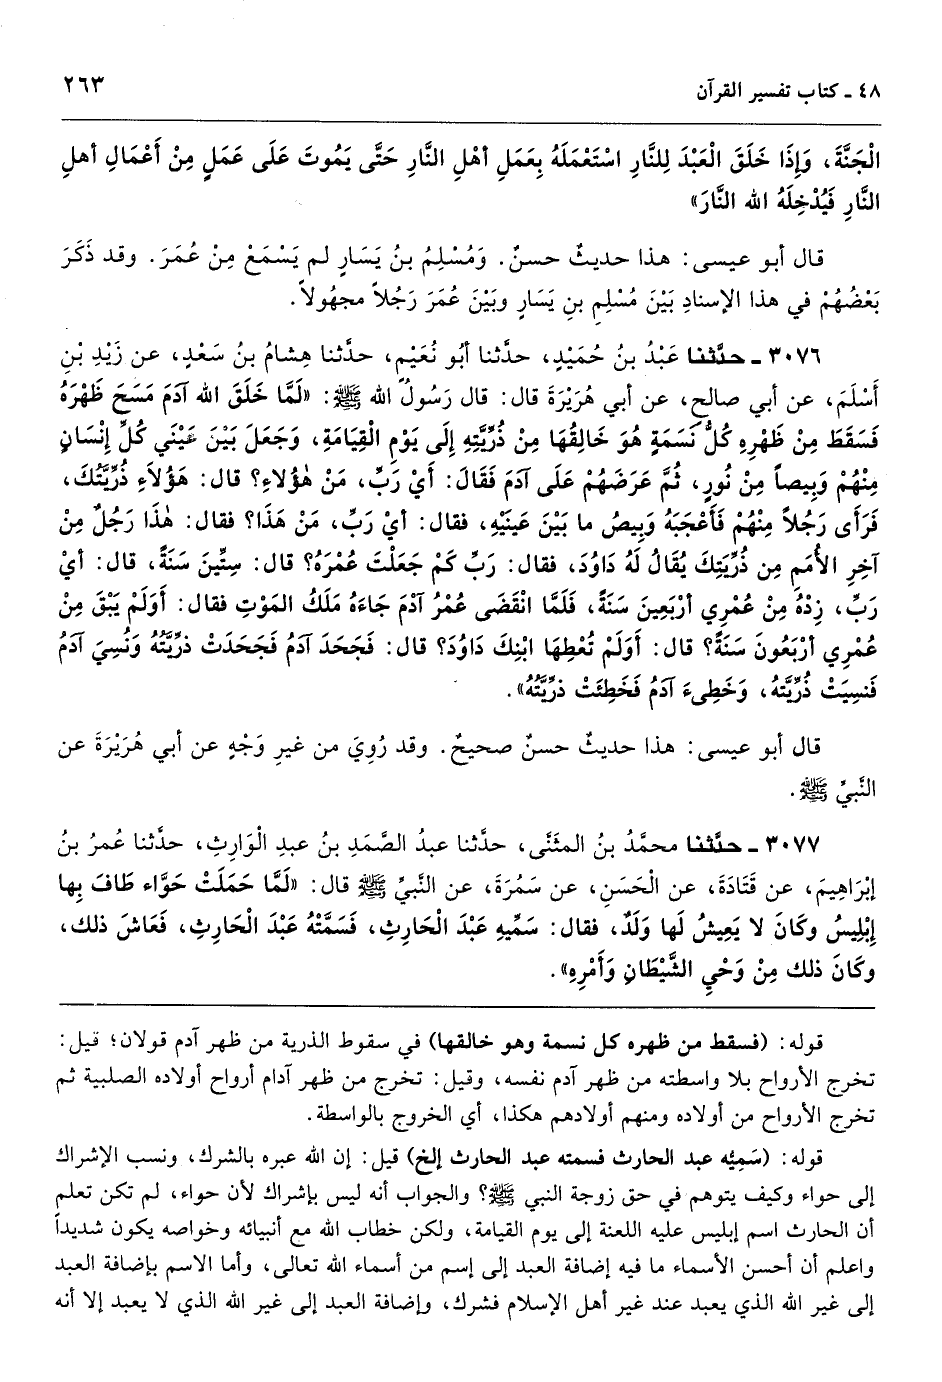 ٤٨ ـ كتاب تفسير القرآن
٢٦٣
الْجَنَّةَ، وَإِذَا خَلَقَ الْعَبْدَ لِلنَّارِ اسْتَعْمَلَهُ بِعَمَلِ أهْلِ النَّارِ حَتَّى يَمُوتَ عَلَى عَمَلٍ مِنْ أَعْمَالِ أهلِ
النَّارِ فَيُدْخِلَهُ الله النَّارَ»
قال أبو عيسى: هذا حديثٌ حسنٌ. وَمُسْلِمُ بنُ يَسَارٍ لم يَسْمَعْ مِنْ عُمَرَ. وقد ذَكَرَ
بَعْضُهُمْ في هذا الإسنادِ بَيْنَ مُسْلِمِ بنِ يَسَارٍ وبَيْنَ عُمَرَ رَجُلاً مجهولاً.
٣٠٧٦ ـ حدَّثنا عَبْدُ بنُ حُمَيْدٍ، حدَّثنا أَبُو نُعَيْمٍ، حدَّثنا هِشامُ بنُ سَعْدٍ، عن زَيْدِ بْنِ
أَسْلَمَ، عن أبي صالحٍ، عن أبي هُرَيْرَةَ قال: قال رَسُولُ الله ﷺ: «لَمَّا خَلَقَ الله آدَمَ مَسَحَ ظَهْرَهُ
فَسَقَطَ مِنْ ظَهْرِهِ كُلُّ نَسَمَةٍ هُوَ خَالِقُهَا مِنْ ذُرِّيَّتِهِ إِلَى يَوْمِ الْقِيَامَةِ، وَجَعَلَ بَيْنَ عَيْنَي كُلِّ إِنْسَانٍ
مِنْهُمْ وَبِيصاً مِنْ نُورٍ، ثُمَّ عَرَضَهُمْ عَلَى آدَمَ فَقَالَ: أَيْ رَبِّ، مَنْ هٰؤُلاءِ؟ قال: هَؤُلاَءِ ذُرِّيَّتُكَ،
فَرَأَى رَجُلاً مِنْهُمْ فَأَعْجَبَهُ وَبِيصُ ما بَيْنَ عَيْنَيْهِ، فقال: أيْ رَبِّ، مَنْ هَذَا؟ فقال: هٰذَا رَجُلٌ مِنْ
آخِرِ الأُمَمِ مِن ذُرِّيَتِكَ يُقَالُ لَهُ دَاوُدَ، فقال: رَبِّ كَمْ جَعَلْتَ عُمْرَهُ؟ قال: سِتِّينَ سَنَةً، قال: أيْ
رَبِّ، زِدْهُ مِنْ عُمْرِي أرْبَعِينَ سَنَةً، فَلَمَّا انْقَضَى عُمْرُ آدَمَ جَاءَهُ مَلَكُ المَوْتِ فقال: أَوَلَمْ يَبْقَ مِنْ
عُمْرِي أرْبَعُونَ سَنَةً؟ قال: أَوَلَمْ تُعْطِهَا ابْنِكَ دَاوُدَ؟ قال: فَجَحَدَ آدَمُ فَجَحَدَتْ ذرِّيَّتُهُ وَنُسِيَ آدَمُ
فَنَسِيَتْ ذُرِّيَّتهُ، وَخَطِىءَ آدَمُ فَخَطِئَتْ ذرِّيَّتُهُ».
قال أبو عيسى: هذا حديثٌ حسنٌ صحيحٌ. وقد رُوِيَ من غيرِ وَجْهٍ عن أبي هُرَيْرَةَ عن
النَّبيِّ ﷺ.
٣٠٧٧ ـ حدَّثنا محمَّدُ بنُ المثنَّى، حدَّثنا عبدُ الصَّمَدِ بنُ عبدِ الْوَارِثِ، حدَّثنا عُمرُ بنُ
إبْرَاهِيمَ، عن قَتَادَةَ، عن الْحَسَنِ، عن سَمُرَةَ، عن النَّبيِّ ﷺ قال: «لَمَّا حَمَلَتْ حَوَّاء طَافَ بِها
إبْلِيسُ وكَانَ لا يَعِيشُ لَها وَلَدٌ، فقال: سَمِّيهِ عَبْدَ الْحَارِثِ، فَسَمَّتْهُ عَبْدَ الْحَارِثِ، فَعَاشَ ذلك،
وكَانَ ذلك مِنْ وَحْيِ الشَّيْطَانِ وَأَمْرِهِ».
قوله: (فسقط من ظهره كل نسمة وهو خالقها) في سقوط الذرية من ظهر آدم قولان؛ قيل:
تخرج الأرواح بلا واسطته من ظهر آدم نفسه، وقيل: تخرج من ظهر آدام أرواح أولاده الصلبية ثم
تخرج الأرواح من أولاده ومنهم أولادهم هكذا، أي الخروج بالواسطة.
قوله: (سَميُّه عبد الحارث فسمته عبد الحارث إلخ) قيل: إن الله عبره بالشرك، ونسب الإشراك
إلى حواء وكيف يتوهم في حق زوجة النبي ﷺ؟ والجواب أنه ليس بإشراك لأن حواء، لم تكن تعلم
أن الحارث اسم إبليس عليه اللعنة إلى يوم القيامة، ولكن خطاب الله مع أنبيائه وخواصه يكون شديداً
واعلم أن أحسن الأسماء ما فيه إضافة العبد إلى إسم من أسماء الله تعالى، وأما الاسم بإضافة العبد
إلى غير الله الذي يعبد عند غير أهل الإسلام فشرك، وإضافة العبد إلى غير الله الذي لا يعبد إلا أنه